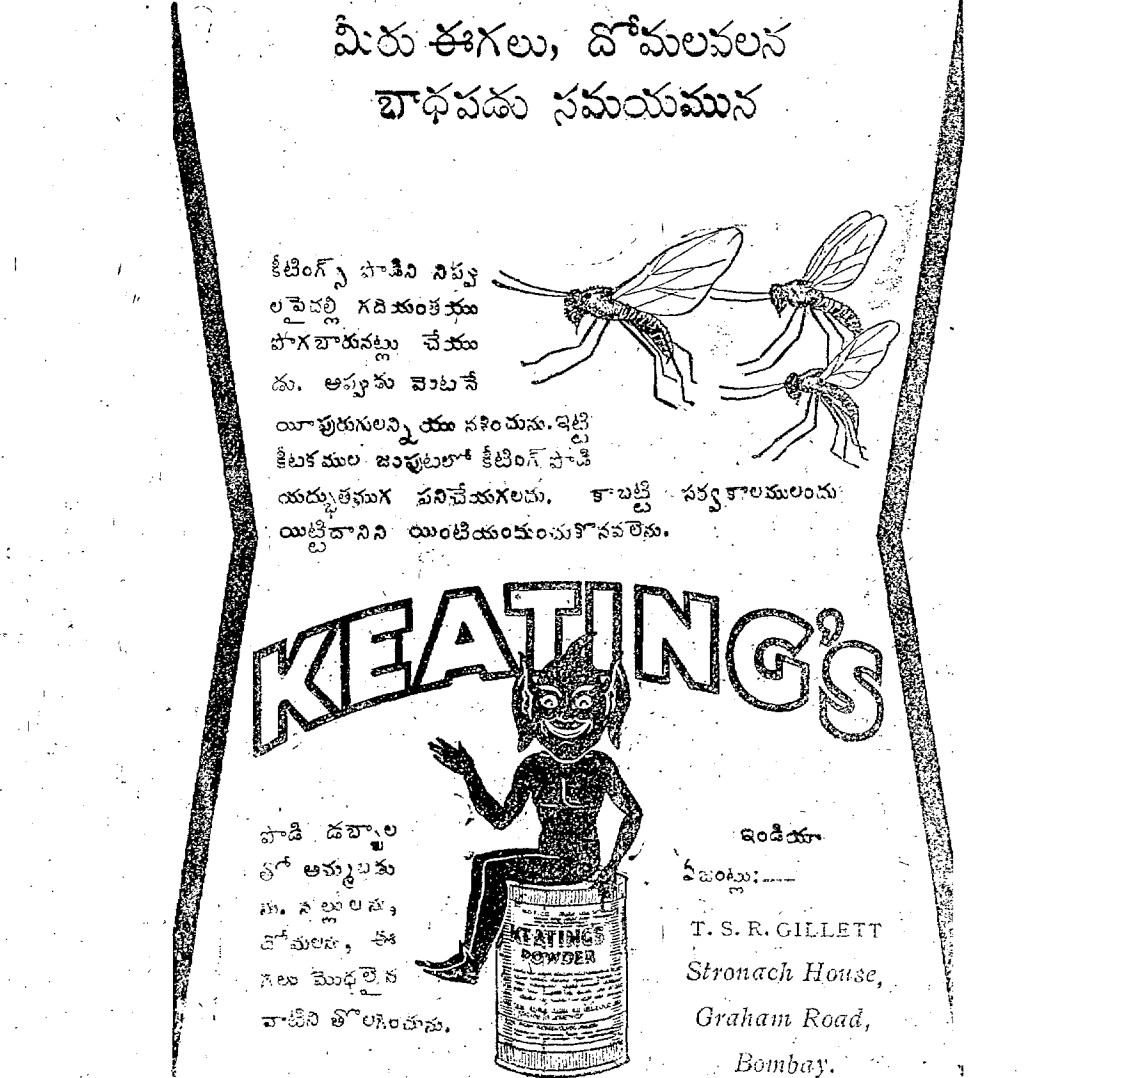 మీరు ఈగలు, దోమలవలన
బాధపడు సమయమున
కీటింగ్స్ పొడిని నిప్పు
లపైచల్లి గదియంతయు
పొగబారునట్లు చేయు
డు. అప్పుడు వెంటనే
యీపురుగులన్నియు నశించును. ఇట్టి
కీటకముల జంపుటలో కీటింగ్ పొడి
యద్భుతముగ పనిచేయగలదు. కాబట్టి సర్వకాలములందు
యిట్టిదానిని యింటియందుంచుకొనవలెను.
KEATING'S
పొడి డబ్బాల
తో అమ్మబడు
ను. నల్లులను,
దోమలను, ఈ
గలు మొదలైన
వాటిని తొలగించును.
KEATING'S
POWDER
ఇండియా
ఏజంట్లు:—
T. S. R. GILLETT
Stronach House,
Graham Road,
Bombay.